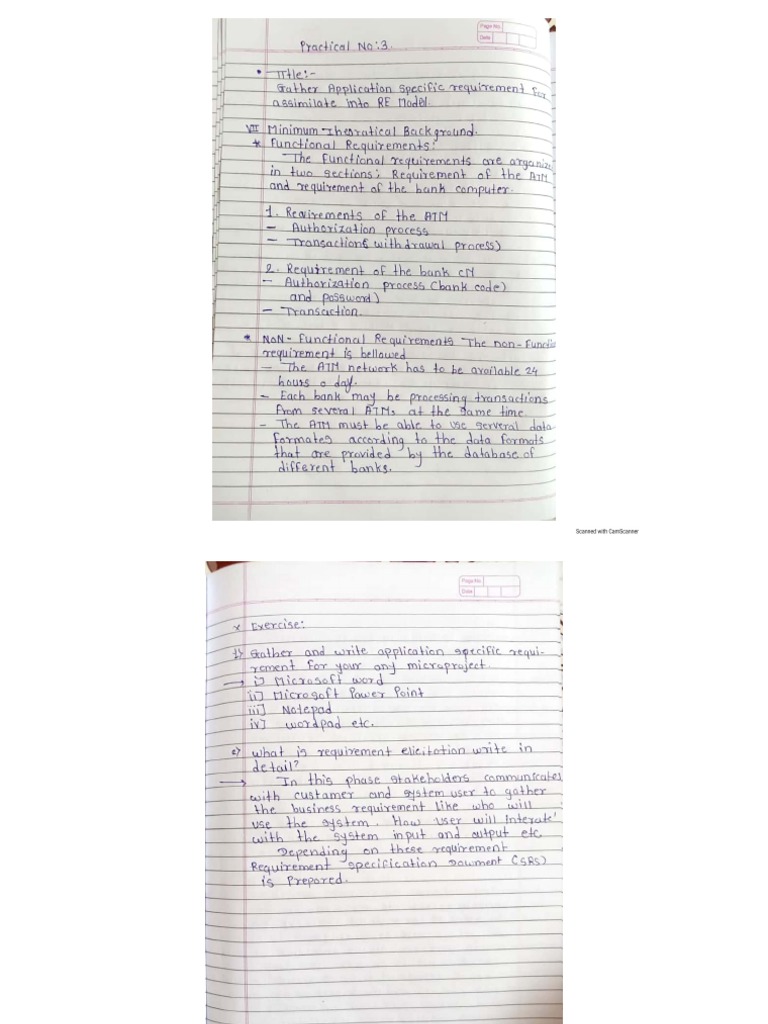 Page No.
Date
Practical No:3.
• Title:-
Gather Application specific requirement for
assimilate into RE Model.
VII Minimum Theoratical Background.
* Functional Requirements:
The functional requirements are organize
in two sections; Requirement of the ATM
and requirement of the bank computer.
1. Reavirements of the ATM
- Authorization process
- Transaction( withdrawal process)
2. Requirement of the bank cM
- Authorization process (bank code)
and possword)
- Transaction.
* NoN- functional Requirements The non-functio
requirement is bellowed
- The ATM network has to be available 24
hours a day.
- Each bank may be processing transactions
from several ATMs at the same time
- The ATM must be able to use serveral data
formates according to the data formats
that are provided by the database of
different banks.
Scanned with CamScanner
Page No.
Date
x Exercise:
1) Gather and write application specific requi-
rement for your any microproject.
→ i) Microsoft word
ii] Microsoft Power Point
iii] Notepad
iv] wordpad etc.
2) what is requirement elicitation write in
detail?
→ In this phase stakeholders communicates
with custamer and system user to gather
the business requirement like who will
use the system. How user will interate
with the system input and output etc.
Depending on these requirement
Requirement specification Doument (SRS)
is Prepared.